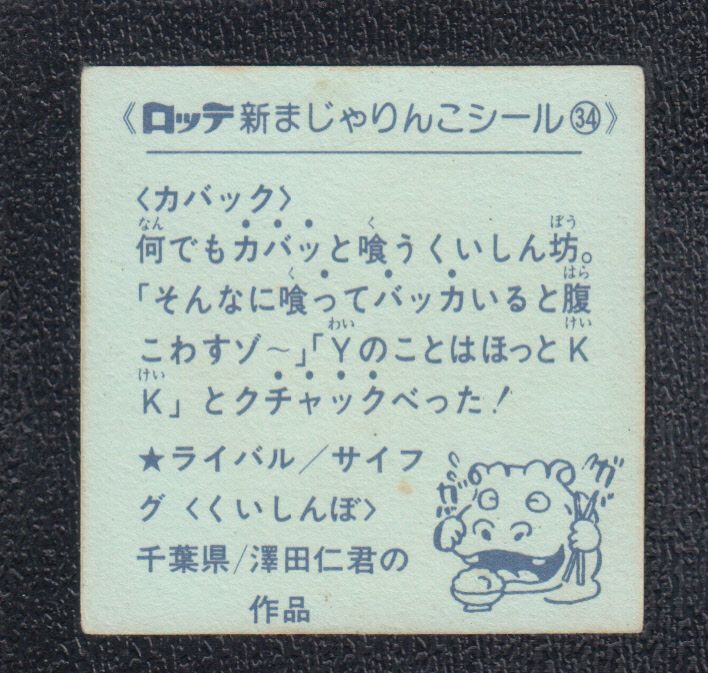 《ロッテ新まじゃりんこシール㉞》
〈カバック〉
何でもカバッと喰うくいしん坊。
「そんなに喰ってバッカいると腹
こわすゾ〜」「Yのことはほっとㅤ K
K」とクチャックべった！
★ライバル／サイフ
グ〈くいしんぼ〉
千葉県/澤田仁君の
作品
ガガ
ガ